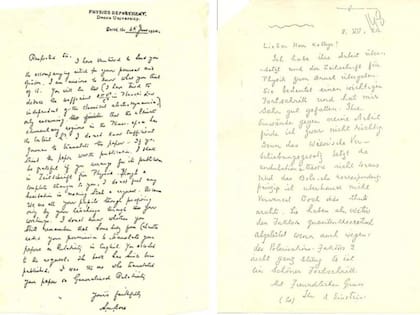 PHYSICS DEPARTMENT,
DACCA UNIVERSITY.
Dated, the June 1924.
Respected Sir, I have ventured to send you
the accompanying article for your perusal and
opinion. I am anxious to know what you think
of it. You will see that I have tried to
deduce the coefficient in Planck's law
independent of the classical electrodynamics,
only assuming that the ultimate
elementary regions in the Phase-space has
the content h³. I do not know sufficient
German to translate the paper. If you
think the paper worth publication, I shall
be grateful if you arrange for its publication
in Zeitschrift für Physik. Though a
complete stranger to you, I do not feel any
hesitation in making such a request. Because
we are all your pupils though profiting
only by your teachings through your
writings. I don't know whether you
still remember that somebody from Calcutta
asked your permission to translate your
papers on Relativity in English. You acceded
to the request. The book has since been
published. I was the one who translated
your paper on Generalised Relativity.
Yours faithfully
SNBose
Lieber Herr Kollege!
Ich habe Ihre Arbeit über-
setzt und der Zeitschrift für
Physik zum Druck übergeben.
Sie bedeutet einen wichtigen
Fortschritt und hat mir
sehr gut gefallen. Ihre
Einwände gegen meine Arbeit
finde ich zwar nicht richtig.
Denn das Wien'sche Ver-
schiebungsgesetz setzt die
Undulationstheorie nicht voraus
und das Bohr'sche Korrespondenz-
prinzip ist überhaupt nicht
verwendet. Doch dies thut
nichts. Sie haben als erster
den Faktor quantentheoretisch
abgeleitet, wenn auch wegen
des Polarisations-Faktors 2
nicht ganz streng. Es ist
ein schöner Fortschritt.
Mit freundlichem Gruss
Ihr A. Einstein